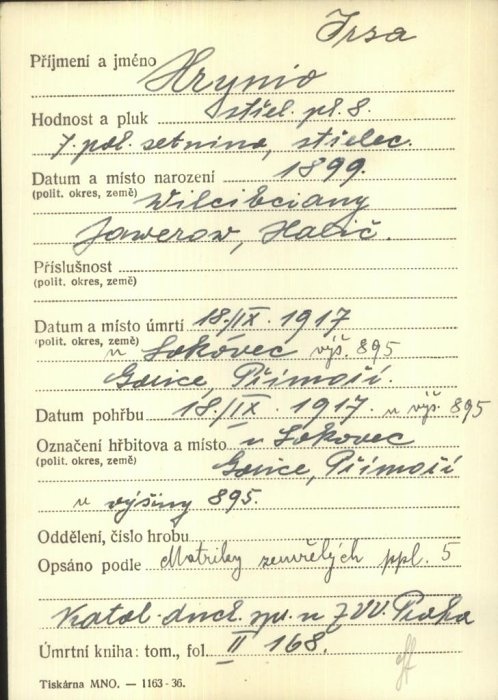 Irsa
Příjmení a jméno Hrynio
Hodnost a pluk střel. pl. 8.
7 pol. setnina, střelec.
Datum a místo narození 1899.
(polit. okres, země) Wilcibciany
Jawerow, Halič.
Příslušnost
(polit. okres, země)
Datum a místo úmrtí 18./IX. 1917
(polit. okres, země) u Lokovec výš. 895
Gorice, Přímoří.
Datum pohřbu 18./IX. 1917. u výš. 895
Označení hřbitova a místo u Lokovec
(polit. okres, země) Gorice, Přímoří
u výšiny 895.
Oddělení, číslo hrobu
Opsáno podle Matriky zemřelých ppl. 5
Katol. duch. spr. u ZVV. Praha
Úmrtní kniha: tom., fol. II 168.
Tiskárna MNO. — 1163-36.